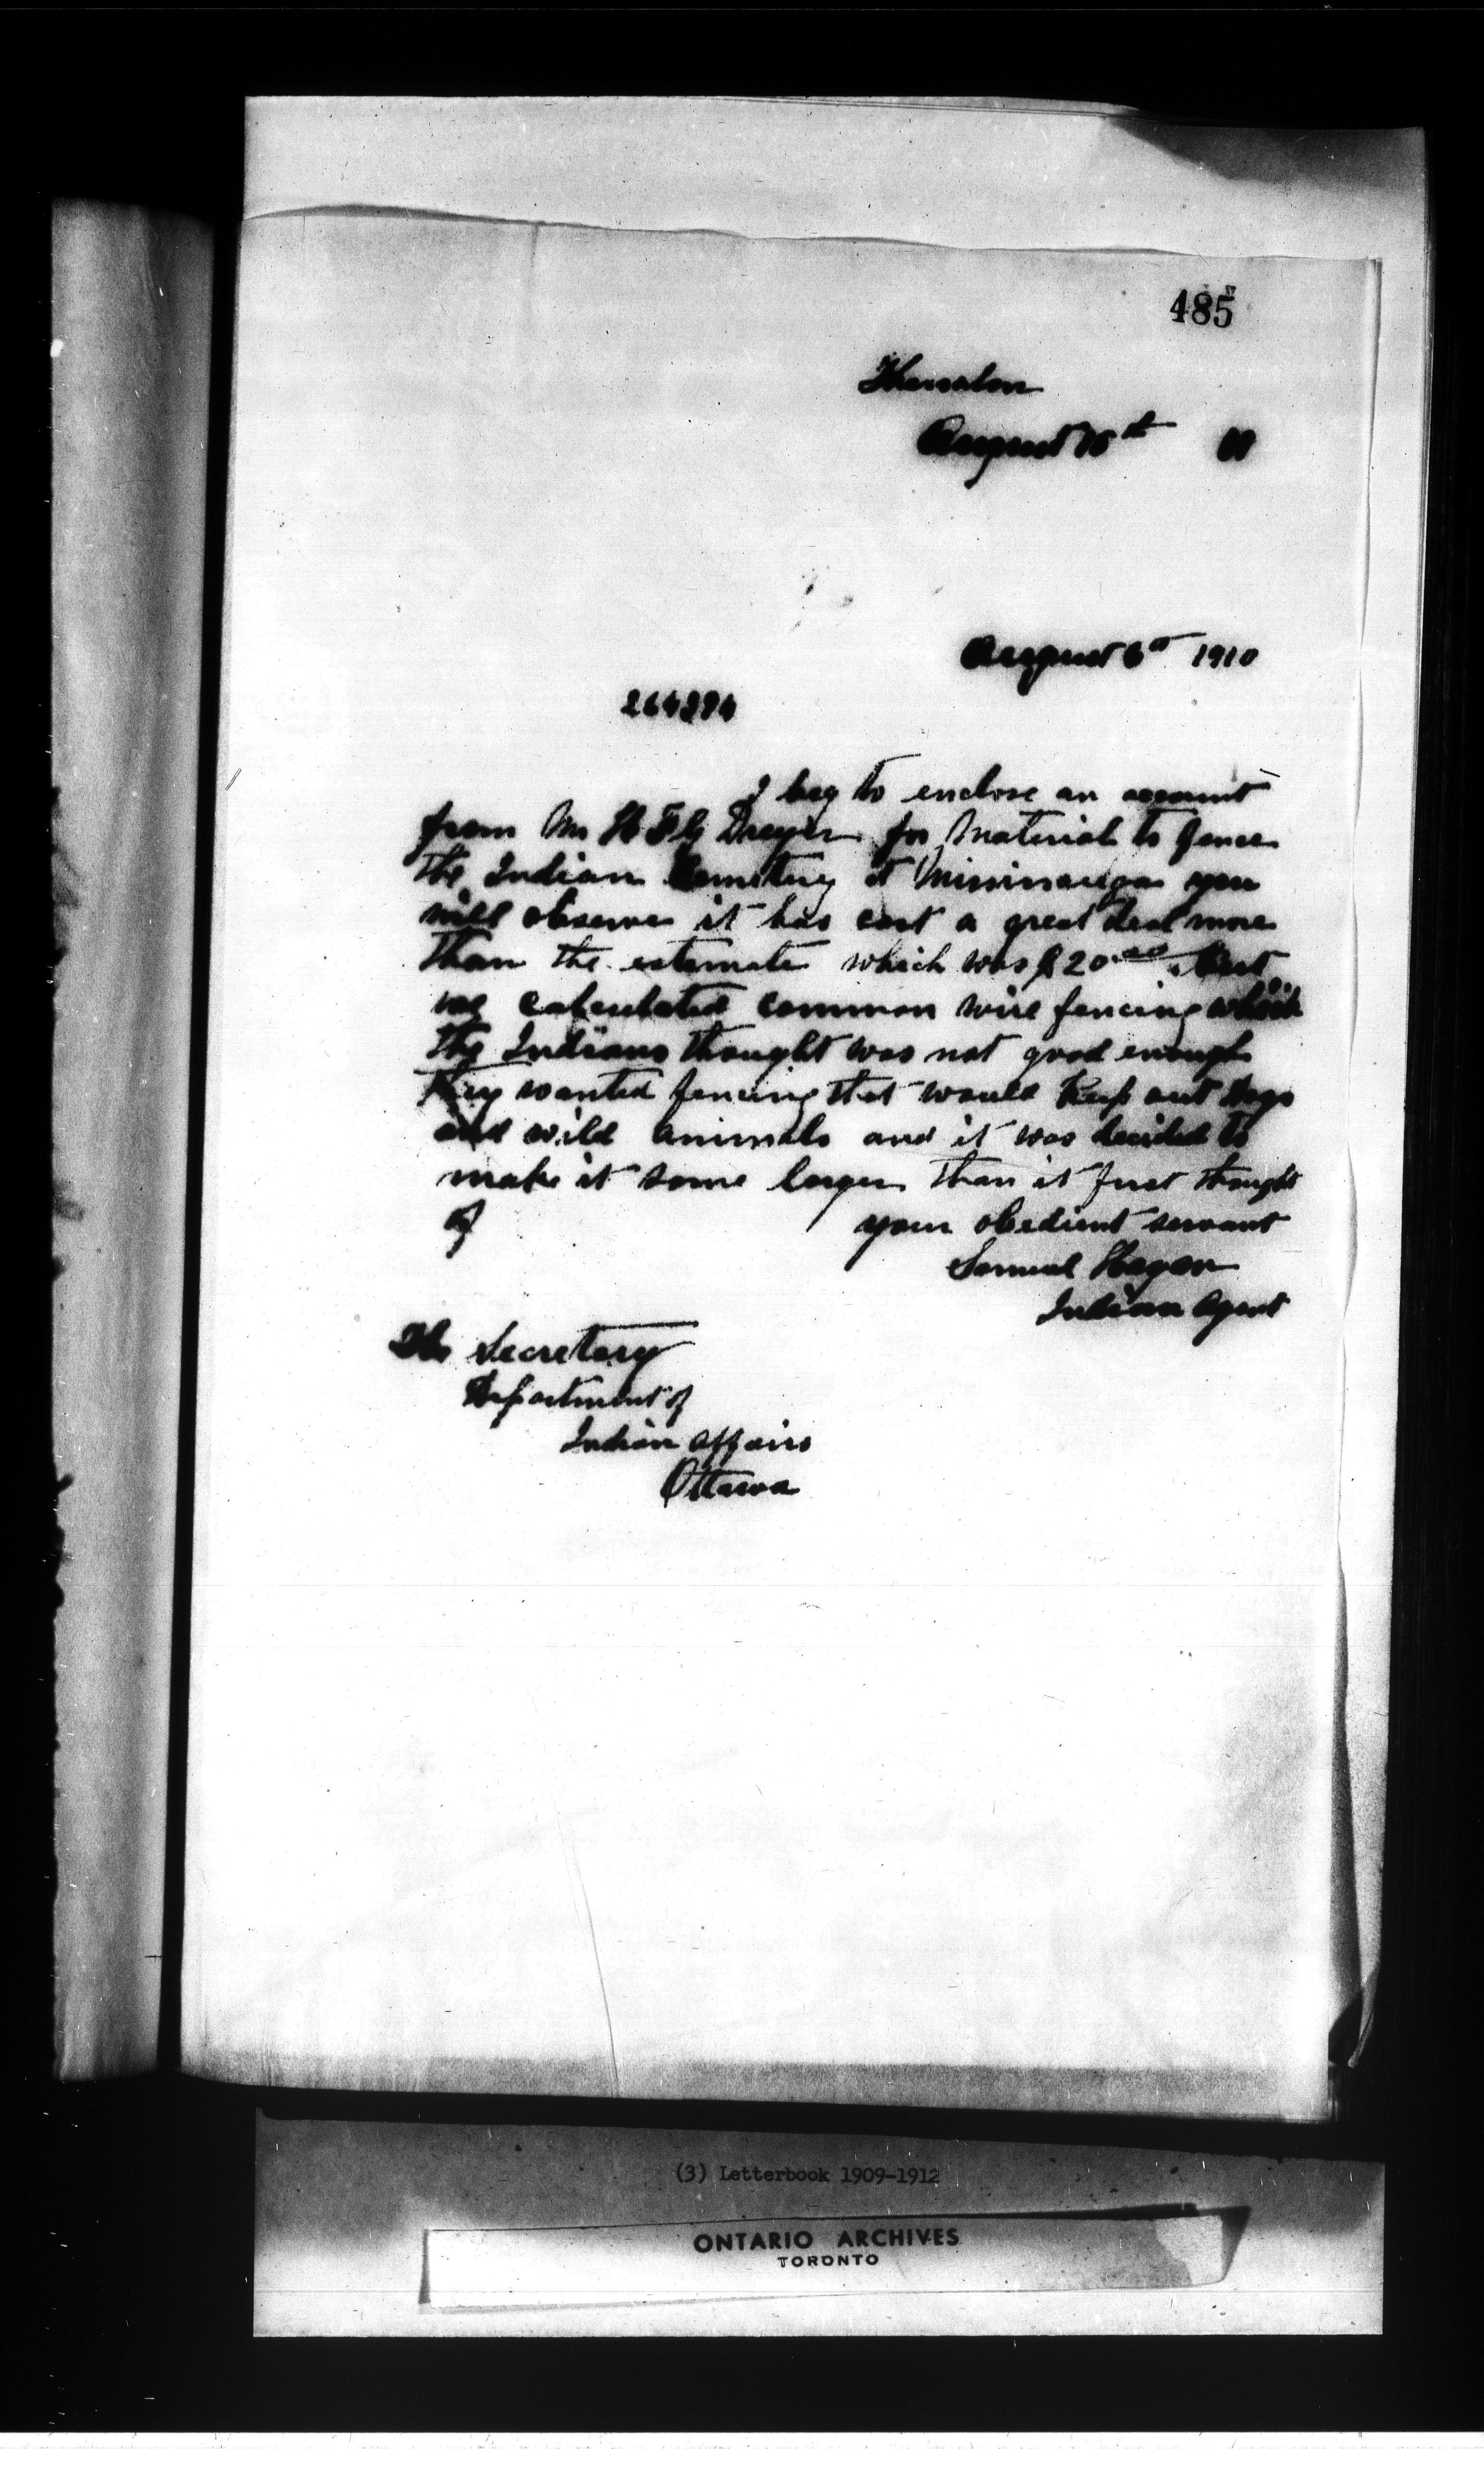 485
Thessalon
August 15th 11
August 6th 1910
264274
I beg to enclose an account
from Mr H F G Dreyer for Material to fence
the Indian Cemetery at Mississauga you
will observe it has cost a great deal more
than the estimate which was $20.00 But
we calculated common wire fencing which
the Indians thought was not good enough
They wanted fencing that would keep out dogs
and wild animals and it was decided to
make it some larger than it first thought
of your obedient servant
Samuel Hagan
Indian Agent
The Secretary
Department of
Indian Affairs
Ottawa
(3) Letterbook 1909-1912
ONTARIO ARCHIVES
TORONTO